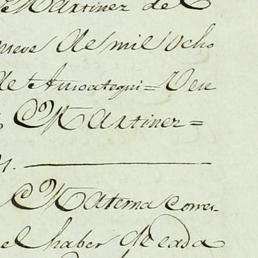 Martinez de
nueve de mil ocho
de Aurrecoategui = Vere
Martinez =
Materna corres-
el haber de cada